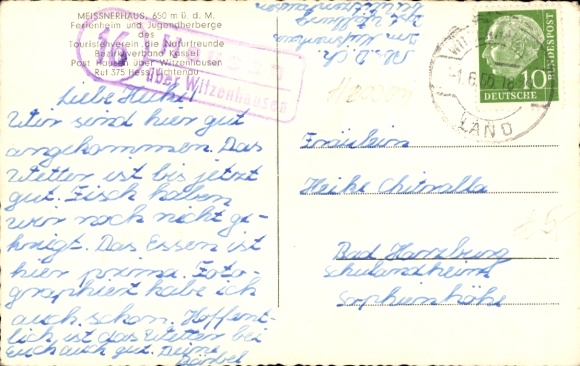 MEISSNERHAUS, 650 m ü. d. M.
Ferienheim und Jugendherberge
des
Touristenverein die Naturfreunde
Bezirksverband Kassel
Post Hausen über Witzenhausen
Ruf 375 Hess. Lichtenau
(16)
über Witzenhausen
Liebe Heike!
Wir sind hier gut
angekommen. Das
Wetter ist bis jetzt
gut. Zisch haben
wir noch nicht ge-
kriegt. Das Essen ist
hier prima. Foto-
graphiert habe ich
auch schon. Hoffent-
lich ist das Wetter bei
Euch auch gut. Deine
Bärbel
Hessen
LAND
10
DEUTSCHE
BUNDESPOST
Fräulein
Heike
Bad Harzburg
Schulandheim
Sophienhöhe